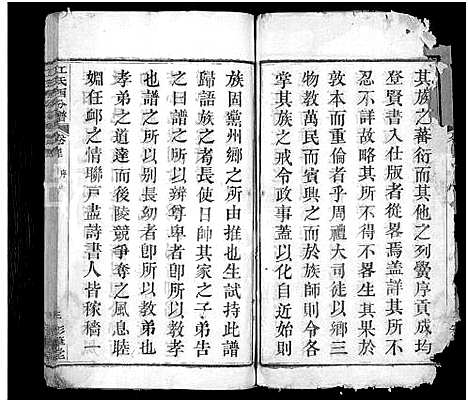 其族之蕃衍而其他之列黌序貢成均
登賢書入仕版者從畧焉蓋詳其所不
忍不詳故畧其所不得不畧生其果於
敦本而重倫者乎周禮大司徒以鄉三
物教萬民而賓興之而於族師則令各
掌其族之戒令政事蓋以化自近始則
族固黨州鄉之所由推也生試持此譜
歸語族之耆長使日帥其家之子弟告
之曰譜之所以辨尊卑者卽所以教孝
也譜之所以別長幼者卽所以教弟也
孝弟之道達而後陵競爭奪之風息睦
婣任卹之情聯戶盡詩書人皆稼穡一
江氏四分譜
卷首
序